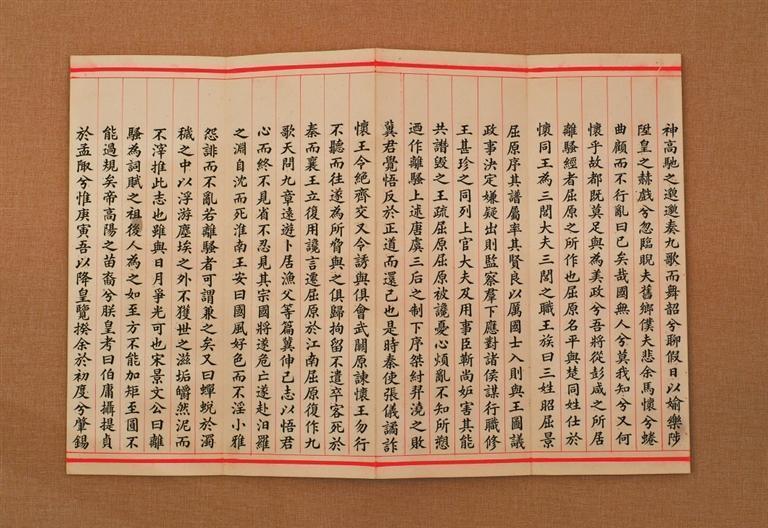 神高馳之邈邈奏九歌而舞韶兮聊假日以媮樂陟
陞皇之赫戲兮忽臨睨夫舊鄉僕夫悲余馬懷兮蜷
曲顧而不行亂曰已矣哉國無人兮莫我知兮又何
懷乎故都既莫足與為美政兮吾將從彭咸之所居
離騷經者屈原之所作也屈原名平與楚同姓仕於
懷同王為三閭大夫三閭之職王族曰三姓昭屈景
屈原序其譜屬率其賢良以厲國士入則與王圖議
政事決定嫌疑出則監察羣下應對諸侯謀行職修
王甚珍之同列上官大夫及用事臣靳尚妬害其能
共譖毀之王疏屈原屈原被讒憂心煩亂不知所愬
迺作離騷上述唐虞三后之制下序桀紂羿澆之敗
冀君覺悟反於正道而還己也是時秦使張儀譎詐
懷王令絕齊交又令誘與俱會武關原諫懷王勿行
不聽而往遂為所脅與之俱歸拘留不遣卒客死於
秦而襄王立復用讒言遷屈原於江南屈原復作九
歌天問九章遠遊卜居漁父等篇冀伸己志以悟君
心而終不見省不忍見其宗國將遂危亡遂赴汨羅
之淵自沈而死淮南王安曰國風好色而不淫小雅
怨誹而不亂若離騷者可謂兼之矣又曰蟬蛻於濁
穢之中以浮游塵埃之外不獲世之滋垢皭然泥而
不滓推此志也雖與日月爭光可也宋景文公曰離
騷為詞賦之祖後人為之如至方不能加矩至圓不
能過規矣帝高陽之苗裔兮朕皇考曰伯庸攝提貞
於孟陬兮惟庚寅吾以降皇覽揆余於初度兮肇錫